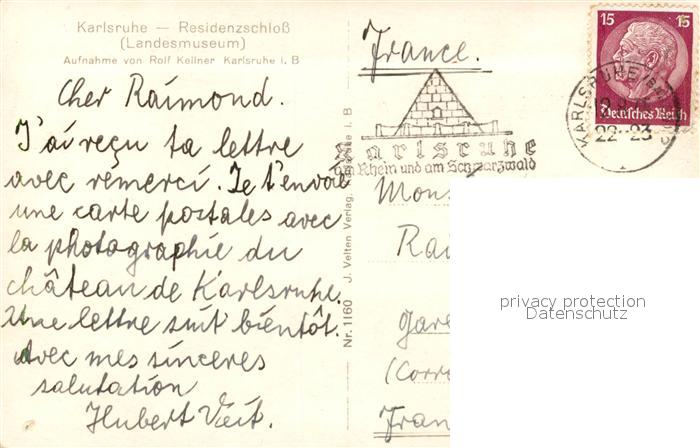 Karlsruhe — Residenzschloß
(Landesmuseum)
Aufnahme von Rolf Kellner Karlsruhe i. B
Cher Raimond.
J'ai reçu ta lettre
avec remerci. Je t'envoie
une carte postales avec
la photographie du
château de Karlsruhe.
Une lettre suit bientôt.
Avec mes sinceres
salutation
Hubert Veit.
Nr. 1160 J. Velten Verlag, Karlsruhe i. B
France.
Karlsruhe
am Rhein und am Schwarzwald
15 15
Deutsches Reich
KARLSRUHE
22-23
Mons
Rai
privacy protection
Datenschutz
Gare
(Corr
Fran